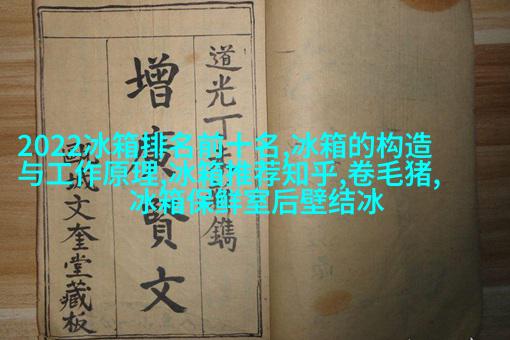 2022冰箱排名前十名,冰箱的构造
与工作原理,冰箱推荐知乎,卷毛猪,
冰箱保鲜室后壁结冰
道光丁鐫
增廣賢文
文奎堂藏板